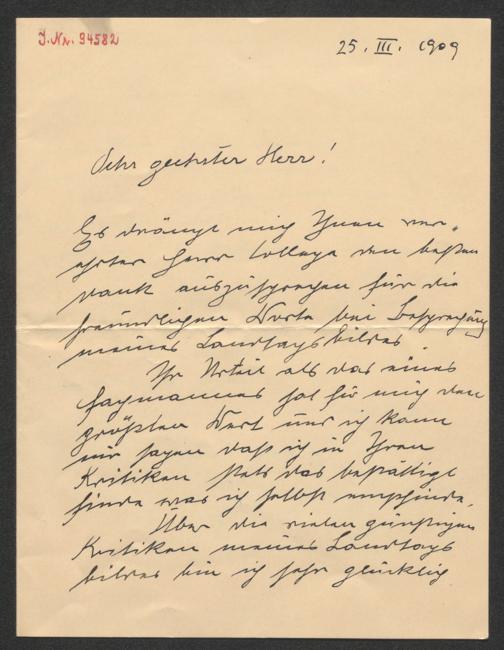 J. Nr. 94582
25. III. 1909
Sehr geehrter Herr!
Es drängt mich Ihnen ver-
ehrter Herr Collega den besten
Dank auszusprechen für die
freundlichen Worte bei Besprechung
meines Landtagsbildes.
Ihr Urteil als das eines
Fachmannes hat für mich den
größten Wert und ich kann
nur sagen daß ich in Ihren
Kritiken stets das bestättigt
finde was ich selbst empfinde.
Über die vielen günstigen
Kritiken meines Landtags
bildes bin ich sehr glücklich